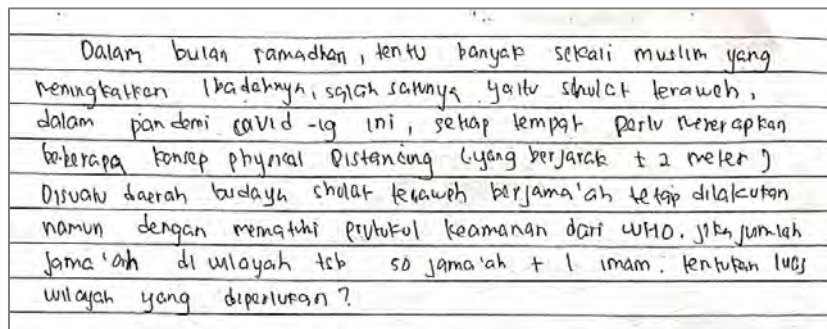 Dalam bulan ramadhan, tentu banyak sekali muslim yang
meningkatkan Ibadahnya, salah satunya yaitu sholat teraweh,
dalam pandemi covid -19 ini, setiap tempat perlu menerapkan
beberapa konsep physical Distancing (yang berjarak ± 2 meter)
Disuatu daerah budaya sholat teraweh berjama'ah tetap dilakukan
namun dengan mematuhi protokol keamanan dari WHO. jika jumlah
jama'ah di wilayah tsb 50 jama'ah + 1 imam. tentukan luas
wilayah yang diperlukan?